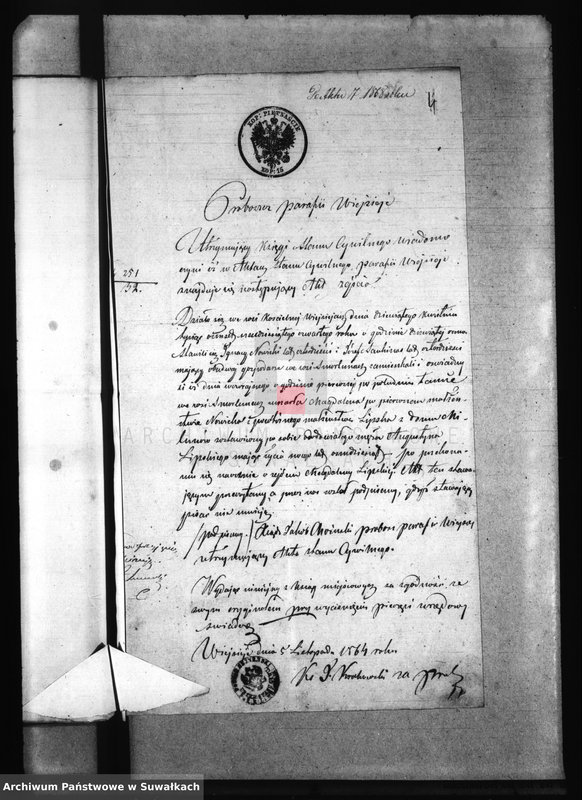 Do Aktu 7 1865 roku
4
KOP: PIĘTNAŚCIE
KOP: 15
Proboszcz parafii Wiejsieje
Utrzymujący Księgi Stanu Cywilnego wiadomo
czyni iż w Aktach Stanu Cywilnego parafii Wiejsieje
znajduje się następujący Akt zejścia
251
Działo się we wsi Kościelnej Wiejsiejach dnia dziewiątego Kwietnia
tysiąc ósmset sześćdziesiątego czwartego roku o godzinie dziewiątej rano
Stawili się Ignacy Nowicki lat czterdzieści i Józef lat czterdzieści
mający obydwaj gospodarze we wsi zamieszkali i oświadczy
li iż dnia wczorajszego o godzinie pierwszej po południu tamże
we wsi umarła Magdalena po pierwszem małżeń
stwie Nowicka z powtórnego małżeństwa Lipska z domu Mi
zostawiwszy po sobie owdowiałego męża Augustyna
Lipskiego mając życia swego lat ośmdziesiąt Po przekona
niu się naocznie o zejściu Magdaleny Lipskiej Akt ten stawa
jącym przeczytany a przez nas został podpisany, gdyż stawający
pisać nie umieją
/podpisany/ Ksiądz Jakób Choiński proboszcz parafii Wiejsieje
utrzymujący Akta Stanu Cywilnego.
Wydając niniejszy z Ksiąg miejscowych za zgodność ze
swym oryginałem przy wyciśnieniu pieczęci urzędowej
świadczę
Wiejsieje dnia 5 Listopada 1864 roku
Ks. J. za Prob
ARCHIWUM PAŃSTWOWE
Archiwum Państwowe w Suwałkach